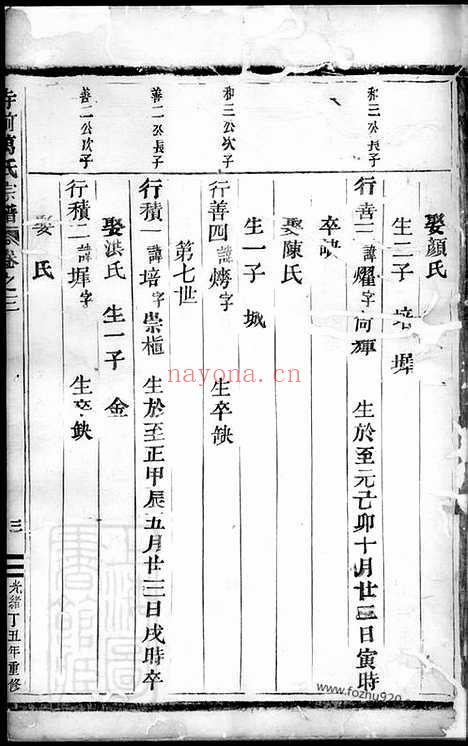 娶顏氏
生二子 培 墀
和三公長子
行善三諱燿字向輝 生於至元己卯十月廿三日寅時
卒缺
娶陳氏
生一子 城
和三公次子
行善四諱燺字 生卒缺
第七世
善二公長子
行積一諱培字崇植 生於至正甲辰五月廿三日戌時卒
娶洪氏 生一子 金
善二公次子
行積二諱墀字 生卒缺
娶氏
前萬氏宗譜 卷之三
三
光緒丁丑年重修
nayona.cn
www.fozhu920.com